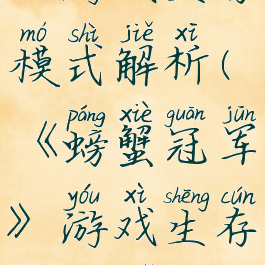 mó shì jiě xī
模式解析(
páng xiè guān jūn
《螃蟹冠军
yóu xì shēng cún
》游戏生存